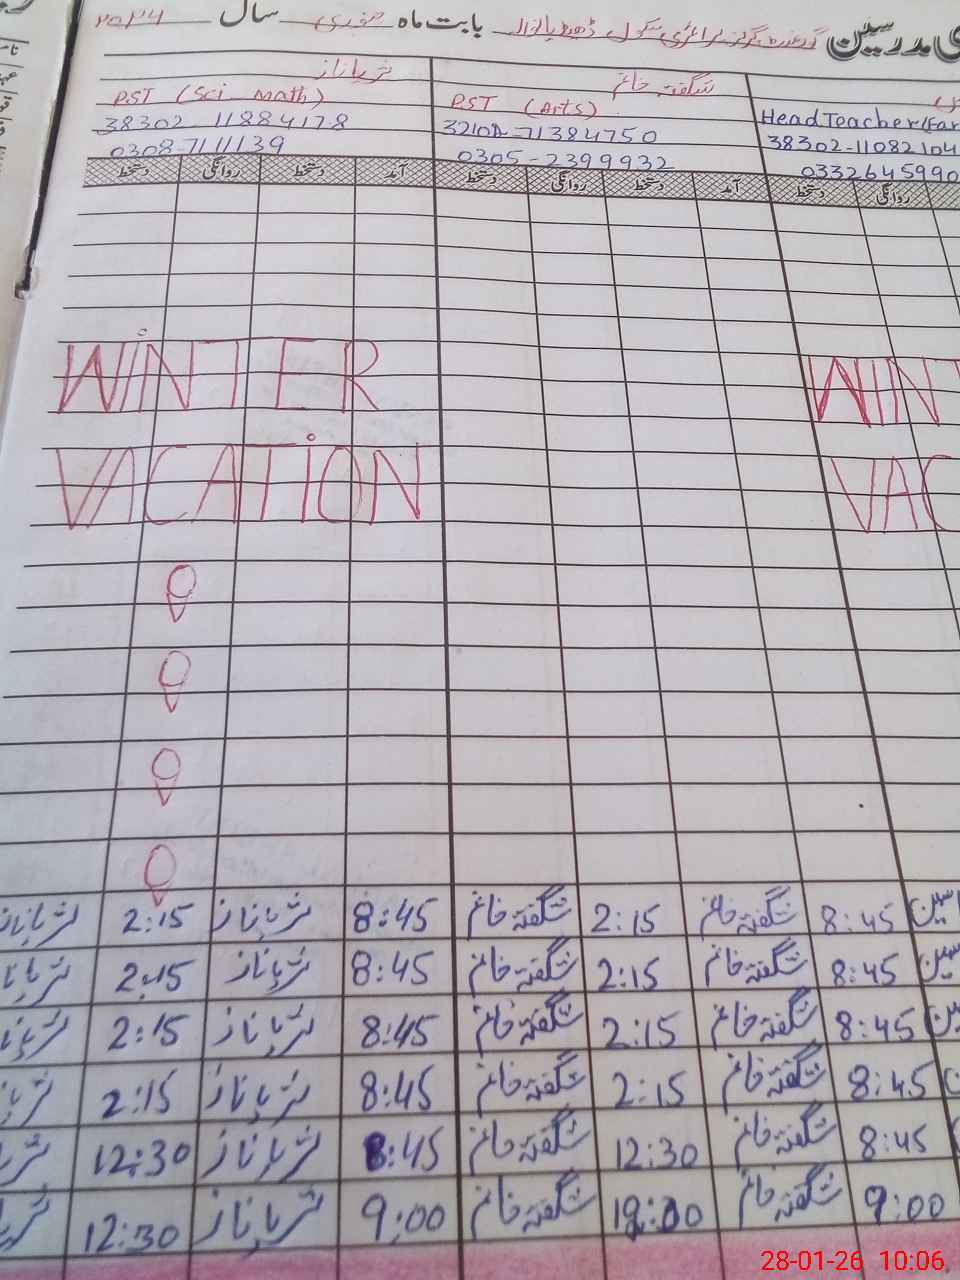 مدرسین گورنمنٹ گرلز پرائمری سکول بابت ماہ جنوری سال
ثریا ناز
PST (Sci_Math)
38302 11884178
0308-7111139
شگفتہ خانم
PST (Arts)
0305-2399932
Head Teacher
38302-11082104
033264599
آمد دستخط روانگی دستخط
آمد دستخط روانگی دستخط
روانگی دستخط
WINTER
VACATION
WINT
VAC
8:45 شگفتہ خانم 2:15 شگفتہ خانم 8:45 ثریا ناز 2:15 ثریا ناز
8:45 شگفتہ خانم 2:15 شگفتہ خانم 8:45 ثریا ناز 2:15
8:45 شگفتہ خانم 2:15 شگفتہ خانم 8:45 ثریا ناز 2:15
8:45 شگفتہ خانم 2:15 شگفتہ خانم 8:45 ثریا ناز 2:15
8:45 شگفتہ خانم 12:30 شگفتہ خانم 8:45 ثریا ناز 12:30
9:00 شگفتہ خانم شگفتہ خانم 9:00 ثریا ناز 12:30
28-01-26 10:06